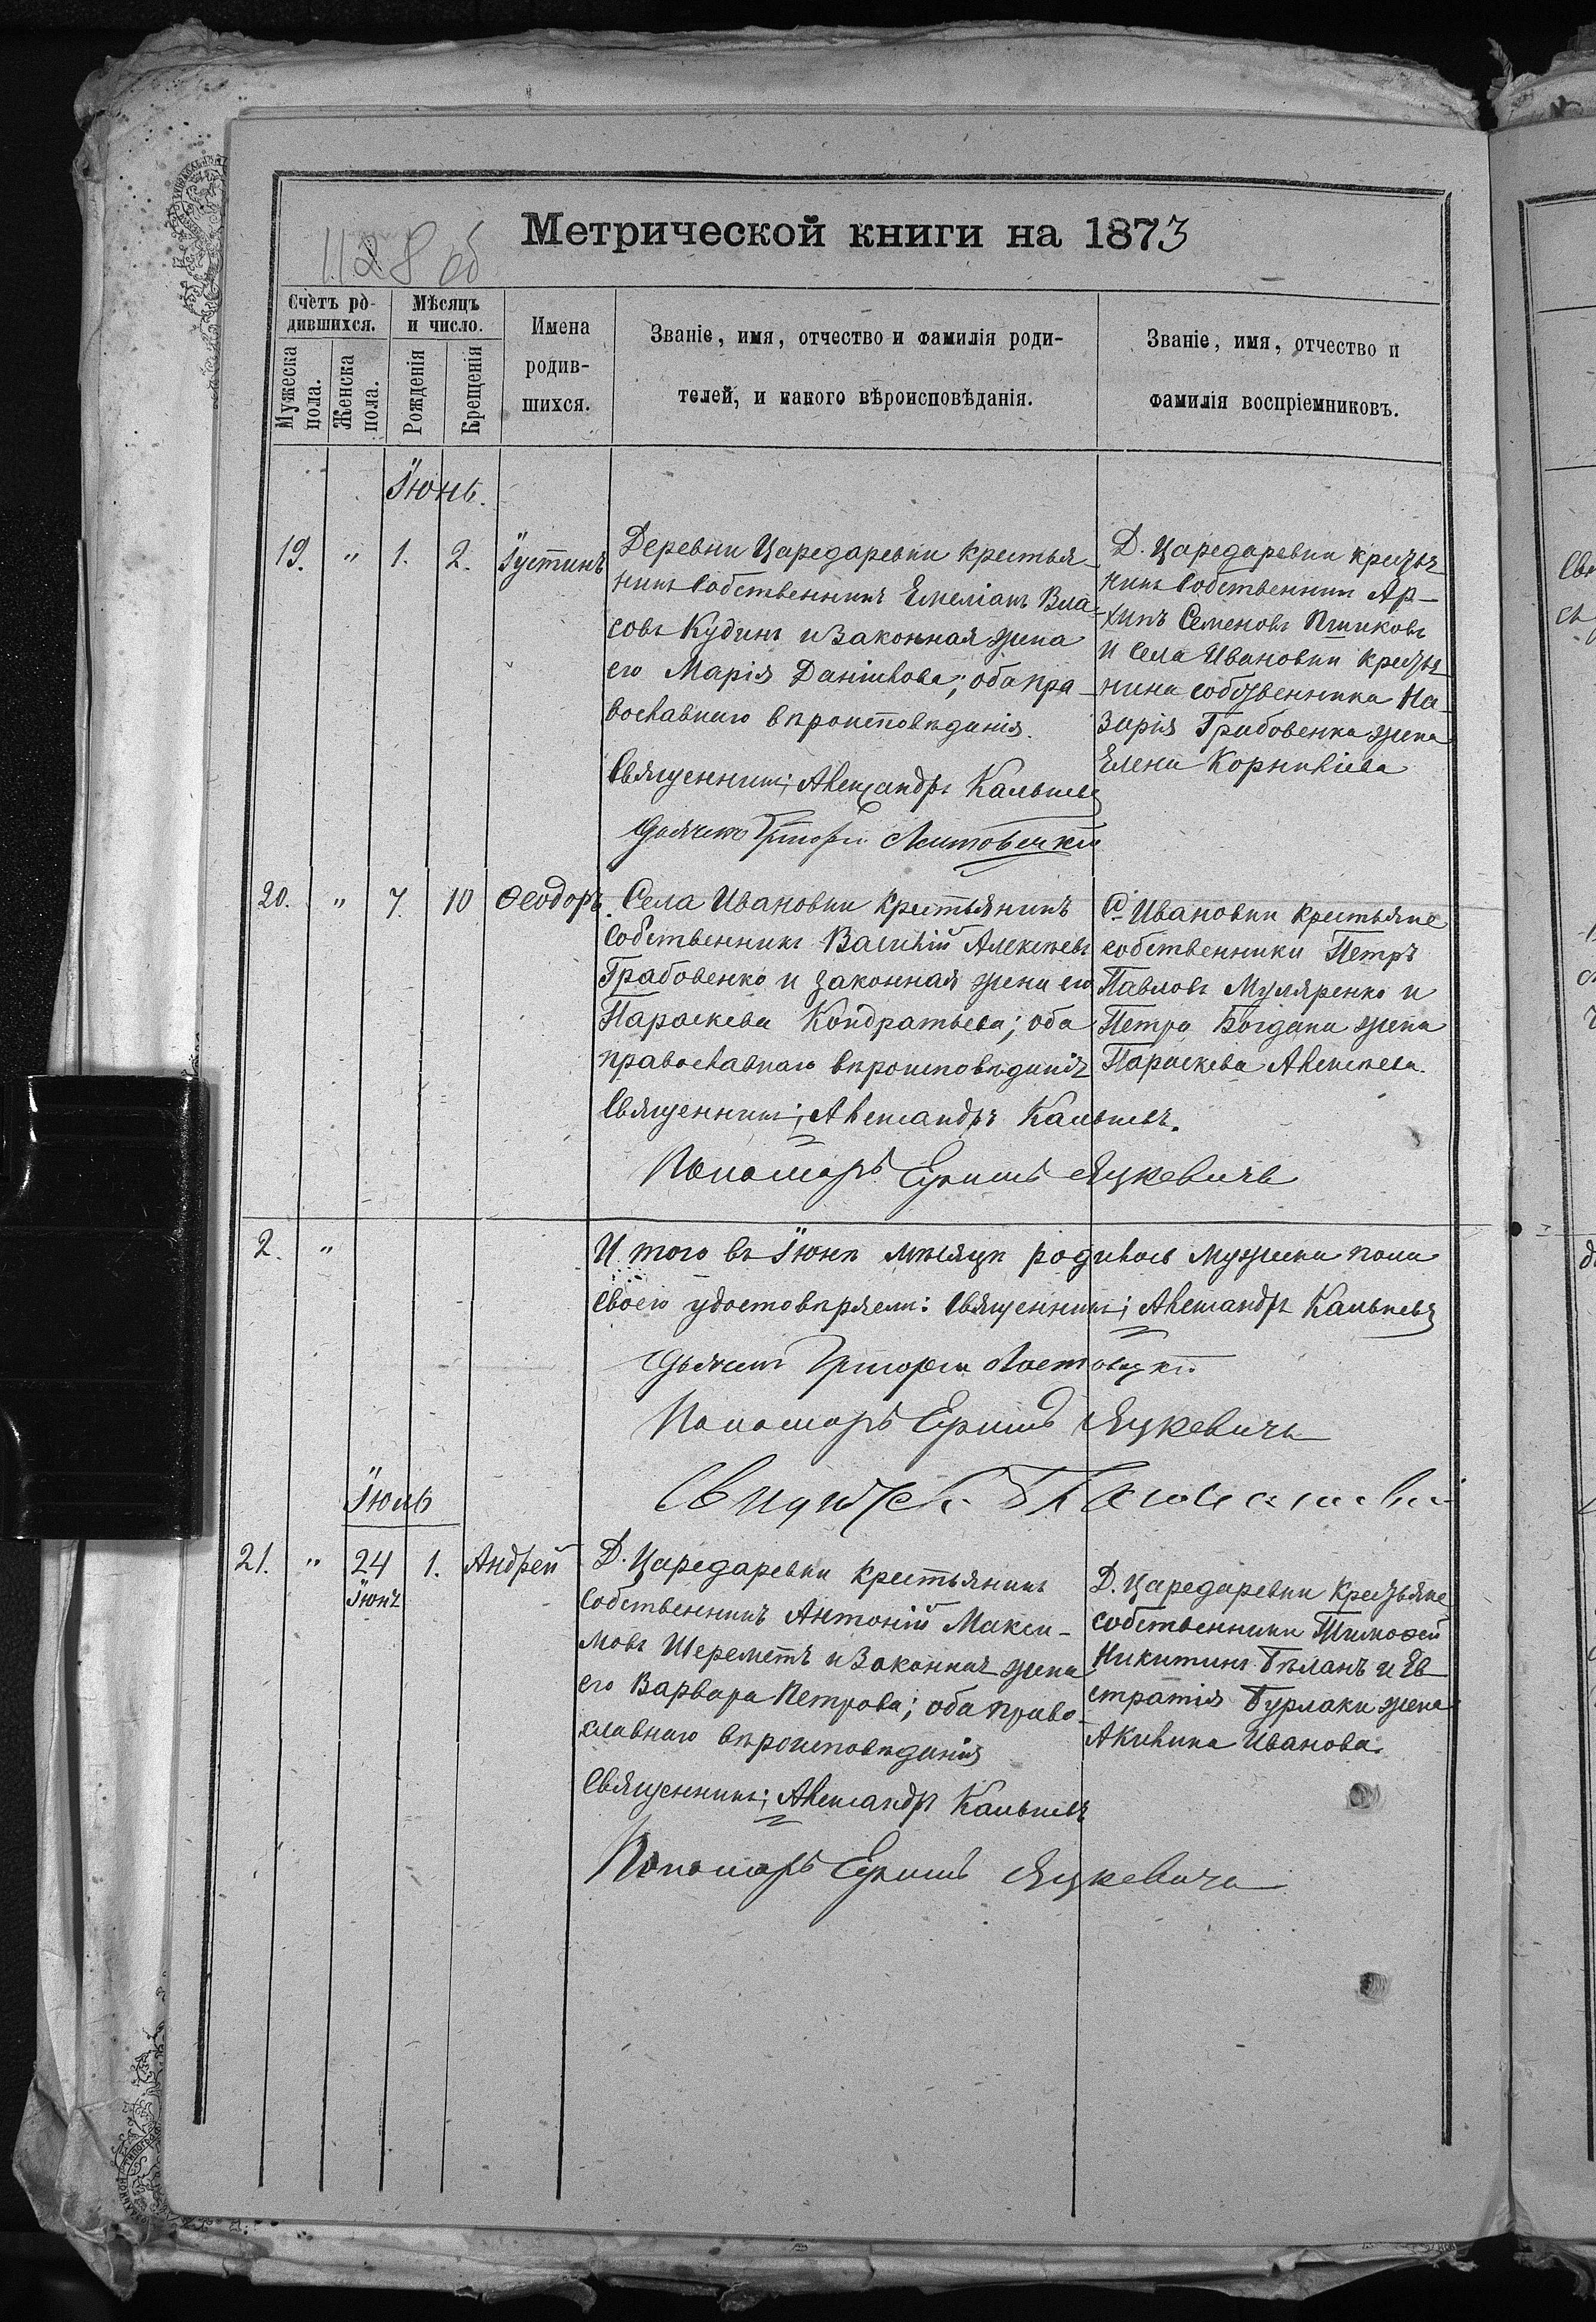 1128 об
Метрической книги на 1873
Счетъ ро-
дившихся.
Мѣсяцъ
и число.
Мужеска
пола.
Женска
пола.
Рожденія
Крещенія
Имена
родив-
шихся.
Званіе, имя, отчество и фамилія роди-
телей, и какого вѣроисповѣданія.
Званіе, имя, отчество и
фамилія воспріемниковъ.
Іюнь.
19. " 1. 2. Іустинъ
Деревни Царедаревки крестья-
нинъ собственникъ Емеліанъ Вла-
совъ Кудинъ и законная жена
его Марія Даніилова; оба пра-
вославнаго вѣроисповѣданія.
Священникъ; Александръ
Дьячекъ Григорій
Д. Царедаревки кресть-
нинъ собственникъ Ар-
хипъ Семеновъ
и села Ивановки кресть-
нина собственника На-
зарія Грабовенка жена
Елена Корнилiева
20. " 7. 10 Ѳеодоръ.
Села Ивановки крестьянинъ
собственникъ Василій Алексѣевъ
Грабовенко и законная жена его
Параскева Кондратьева; оба
православнаго вѣроисповѣданія
Священникъ; Александръ
Пономарь Яцкевичъ
С. Ивановки крестьяне
собственники Петръ
Павловъ Муляренко и
Петра Богдана жена
Параскева Алексѣева.
2. "
И того въ Іюнѣ мѣсяцѣ родилось мужска пола
своею удостовѣряемъ: Священникъ; Александръ
Дьячекъ Григорій
Пономарь Яцкевичъ
Іюль
21. " 24 1. Андрей
Іюня
Д. Царедаревки крестьянинъ
собственникъ Антоній Макси-
мовъ Шереметъ и законная жена
его Варвара Петрова; оба право-
славнаго вѣроисповѣданія
Священникъ; Александръ
Пономарь Яцкевичъ
Д. Царедаревки крестьяне
собственники Тимофей
Никитинъ Бѣланъ и Ев
стратія Бурлаки жена
Акилина Иванова.